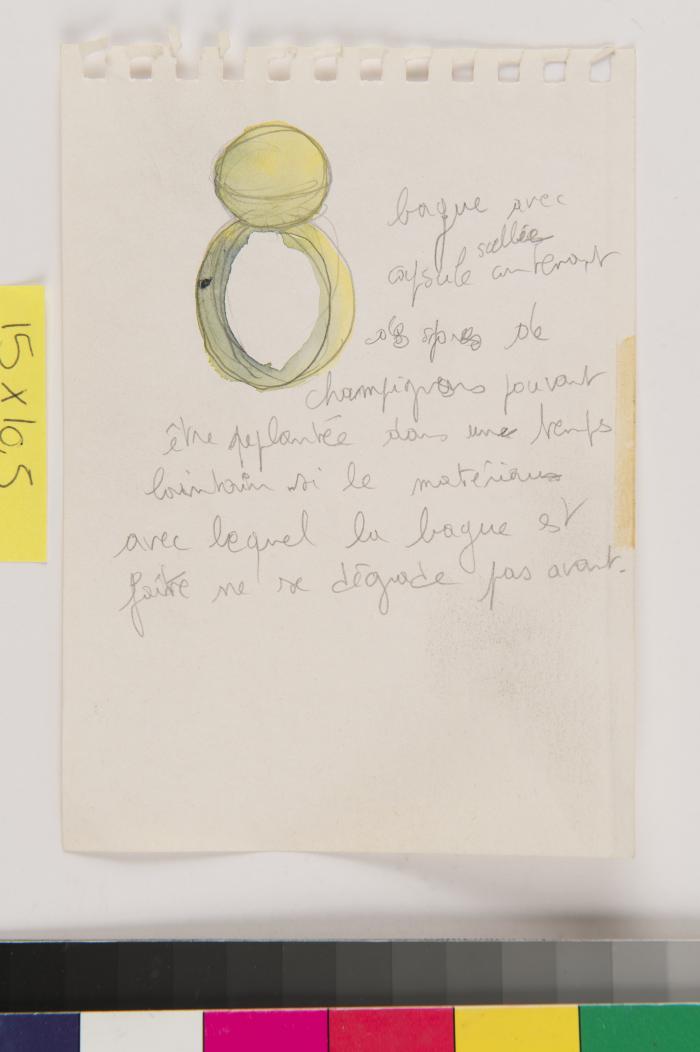 bague avec
scellée
capsule contenant
des spores de
champignons pouvant
être replantée dans une temps
lointain si le matériaux
avec lequel la bague est
faite ne se dégrade pas avant.
15 x 10,5